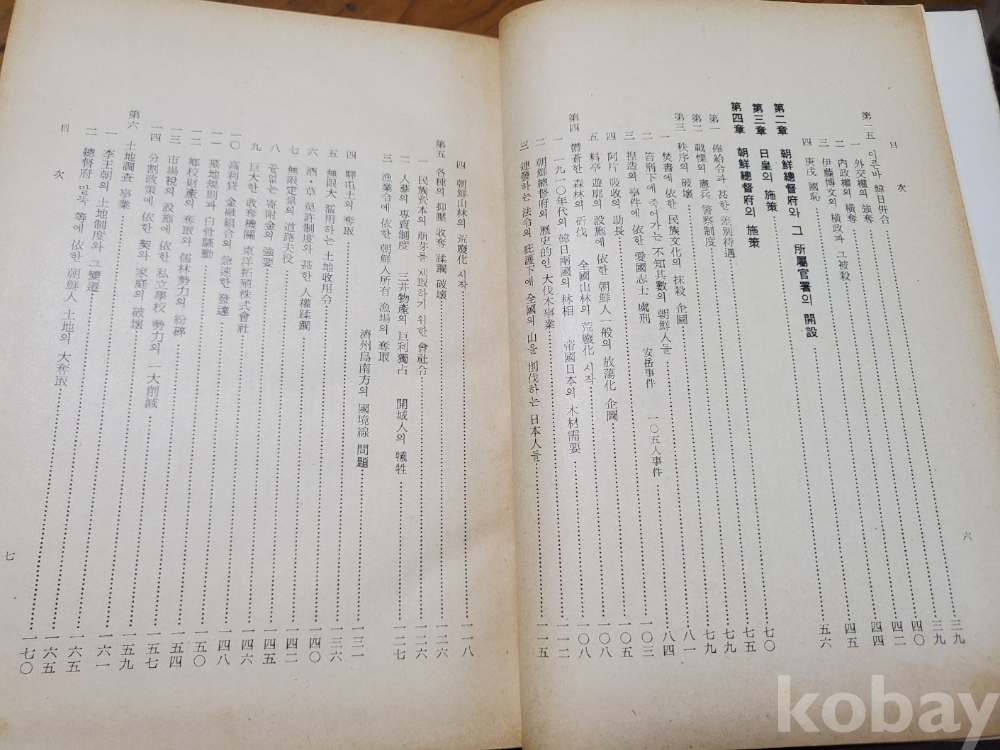 目 次
第一五 이른바 韓日併合 三九
一 外交權의 強奪 三九
二 內政權의 橫奪 四〇
三 伊藤博文의 橫政과 그 被殺 四二
四 庚戌國恥 四四
四五
第二章 朝鮮總督府와 그 所屬官署의 開設 五六
第三章 日皇의 施策 七〇
第四章 朝鮮總督府의 施策 七五
第一 俸給合과 甚한 差別待遇 七九
第二 戰慄의 憲兵 警察制度 七九
第三 秩序의 破壞 八一
一 焚書에 依한 民族文化의 抹殺 企圖
二 笞刑下에 죽어가는 不知其數의 朝鮮人들 八四
三 捏造의 事件에 依한 愛國志士 處刑 安岳事件 一〇五人事件 一〇三
四 阿片 吸收의 助長 一〇五
五 料亭 遊廓의 設施에 依한 朝鮮人 一般의 放蕩化 企圖 一〇八
第四 鬱蒼한 森林의 斫伐 全國山林의 荒廢化 시작 一〇八
一 一九一〇年代의 韓日兩國의 林相 帝國日本의 木材需要 一一二
二 朝鮮總督府의 歷史的인 大伐木事業 一一五
三 連發하는 法令의 庇護下에 全國의 山을 削伐하는 日本人들
六
四 朝鮮山林의 荒廢化 시작 一一八
第五 各種의 抑壓 收奪 蹂躪 破壞 一二六
一 民族資本의 萌芽를 제取하기 위한 會社令 一二六
二 人蔘의 專賣制度 三井物產의 巨利獨占 開城人의 犧牲 一二七
三 漁業令에 依한 朝鮮人所有 漁場의 奪取 濟州島南方의 國境線 問題
四 驛屯土의 奪取 一三一
五 無限大 濫用하는 土地收用令 一三六
六 酒·草 免許制度와 甚한 人權蹂躪 一四〇
七 無限定量의 道路夫役 一四二
八 끝없는 寄附金의 強要 一四五
九 巨大한 收奪機關 東洋拓殖株式會社 一四五
一〇 高利貸 金融組合의 急速한 發達 一四八
一一 墓地規則과 白骨騷動 一五〇
一二 鄉校財產의 奪取와 儒林勢力의 粉碎 一五四
一三 市場稅의 設施에 依한 私立學校 勢力의 一大削減 一五七
一四 分割政策에 依한 契와 家庭의 破壞 一五九
第六 土地調査 事業 一六一
一 李王朝의 土地制度와 그 變遷 一六五
二 總督府 말뚝 等에 依한 朝鮮人 土地의 大奪取 一七〇
目 次
七
kobay